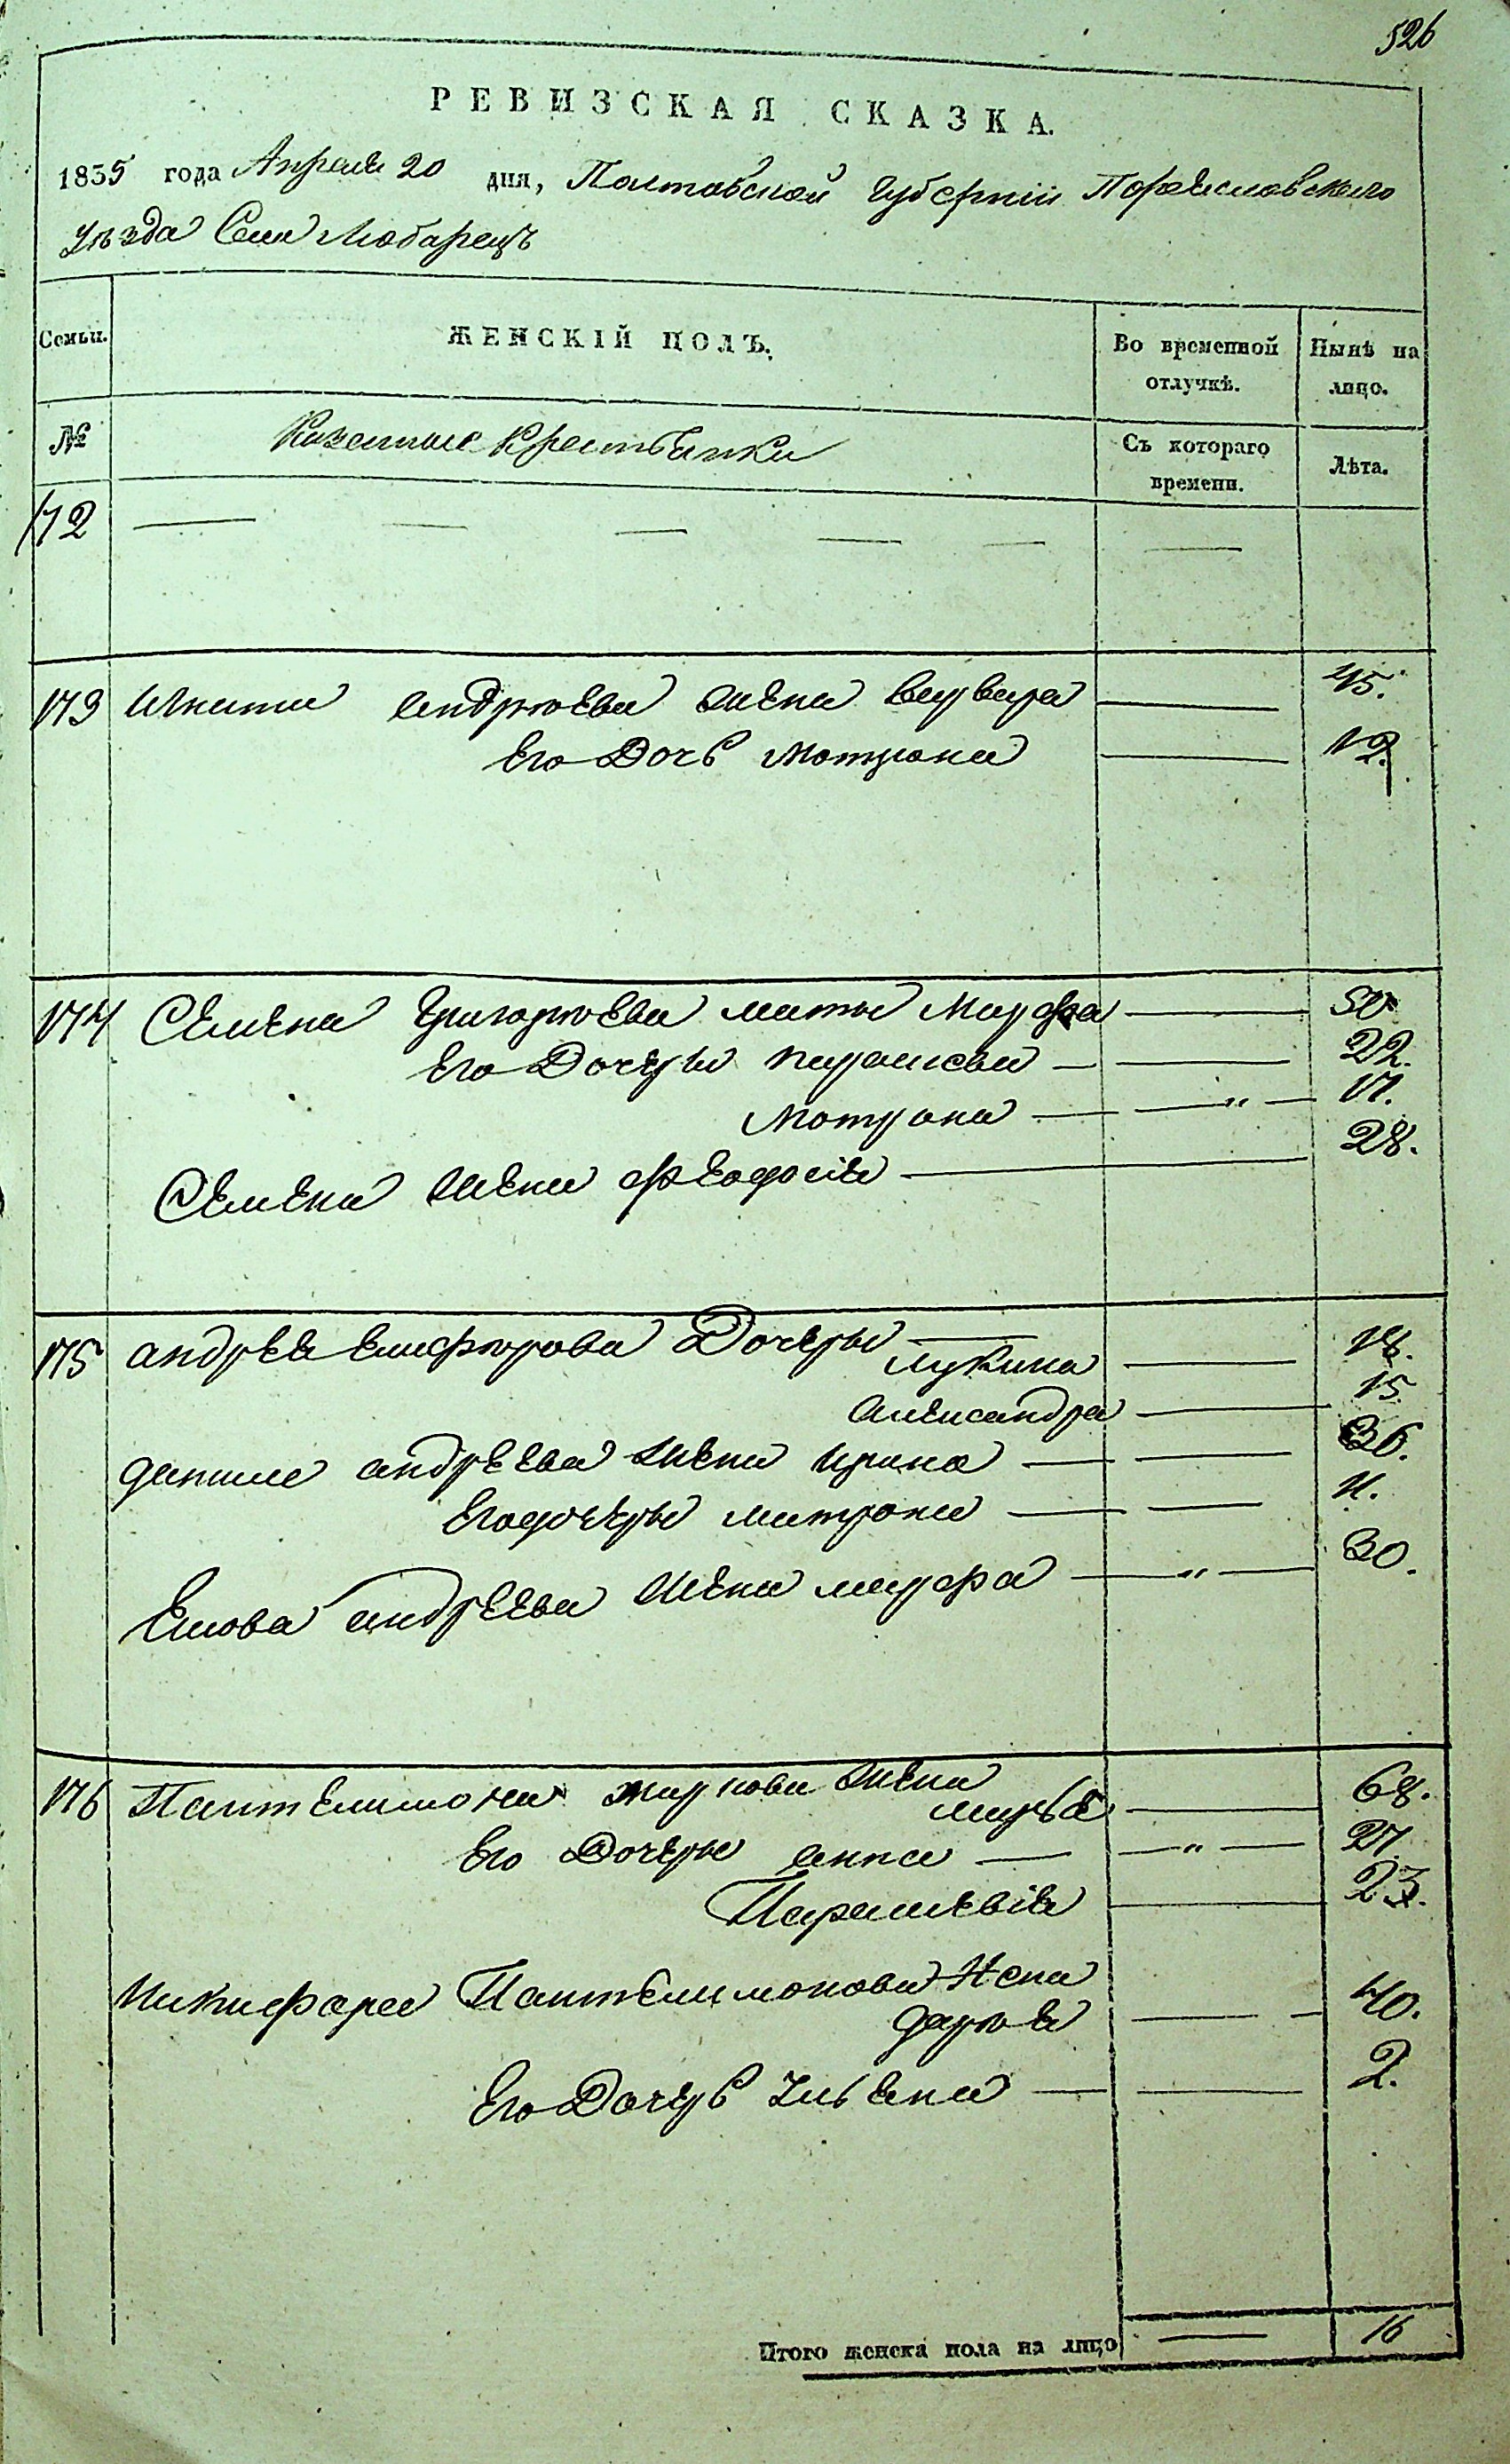 526
РЕВИЗСКАЯ СКАЗКА.
1835 года Апреля 20 дня, Полтавской Губернии Переяславского
уезда Села Любарецъ
Семьи. ЖЕНСКІЙ ПОЛЪ. Во временной отлучкѣ. Нынѣ на лицо.
№ Казенные Крестьянки Съ котораго времени. Лѣта.
172 — — — — — —
173 Игната андрюева жена варвара — 45.
Его Дочь мотрона — 12.
174 Семена Григорюева мать Марфа — 50
Его Дочеры параскева — 22.
Мотрона — " — 17.
Семена жена феодосія — 28.
175 андрея Дочеры —
лукина — 18.
александра — 15
данила андреева жена ирина — 36.
Его дочеры матрона — 11.
андреева жена марфа — " — 30.
176 Пантелимона маркова жена
марья — 68.
Его Дочеры анна — " — 27
Парасковія — 23.
Никифора Пантелимонова Жена
дарюя — 40.
Его Дочерь — 2.
Итого женска пола на лицо — 16